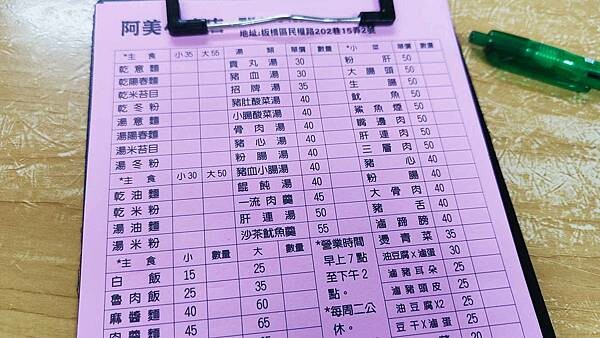 阿美
地址:板橋區民權路202巷15弄2號
*主食 小35 大55 湯類 單價 數量 *小菜 單價 數量
乾意麵 貢丸湯 30 粉肝 50
乾陽春麵 豬血湯 30 大腸頭 50
乾米苔目 招牌湯 35 生腸 50
乾冬粉 豬肚酸菜湯 40 魷魚 50
湯意麵 小腸酸菜湯 40 鯊魚煙 50
湯陽春麵 骨肉湯 40 嘴邊肉 50
湯米苔目 豬心湯 40 肝連肉 50
湯冬粉 粉腸湯 40 三層肉 50
*主食 小30 大50 豬血小腸湯 40 豬心 40
乾油麵 餛飩湯 40 粉腸 40
乾米粉 一流肉羹 45 大骨肉 40
湯油麵 肝連湯 50 豬舌 40
湯米粉 沙茶魷魚羹 55 滷蹄膀 40
*主食 小 數量 大 數量 *營業時間 燙青菜 35
白飯 15 25 早上7點 油豆腐x滷蛋 30
魯肉飯 25 35 至下午2 滷豬耳朵 25
麻醬麵 40 60 點。 滷豬頭皮 25
肉羹麵 45 65 *每周二公 油豆腐X2 20
休。 豆干X滷蛋 20